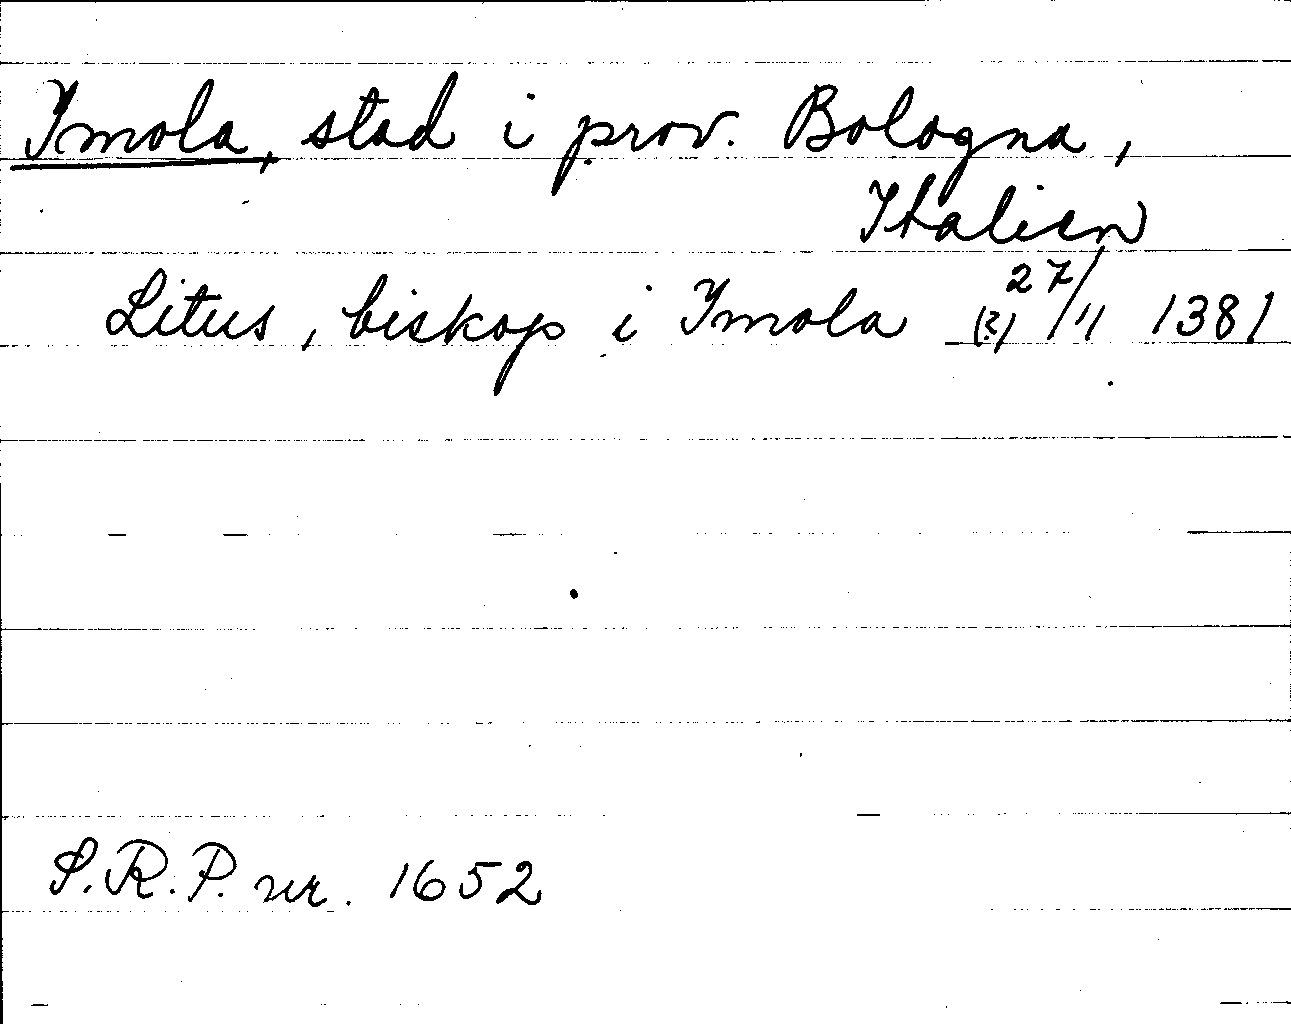 Imola, stad i prov. Bologna,
Italien
Litus, biskop i Imola (?) 27/11 1381
S.R.P. nr. 1652